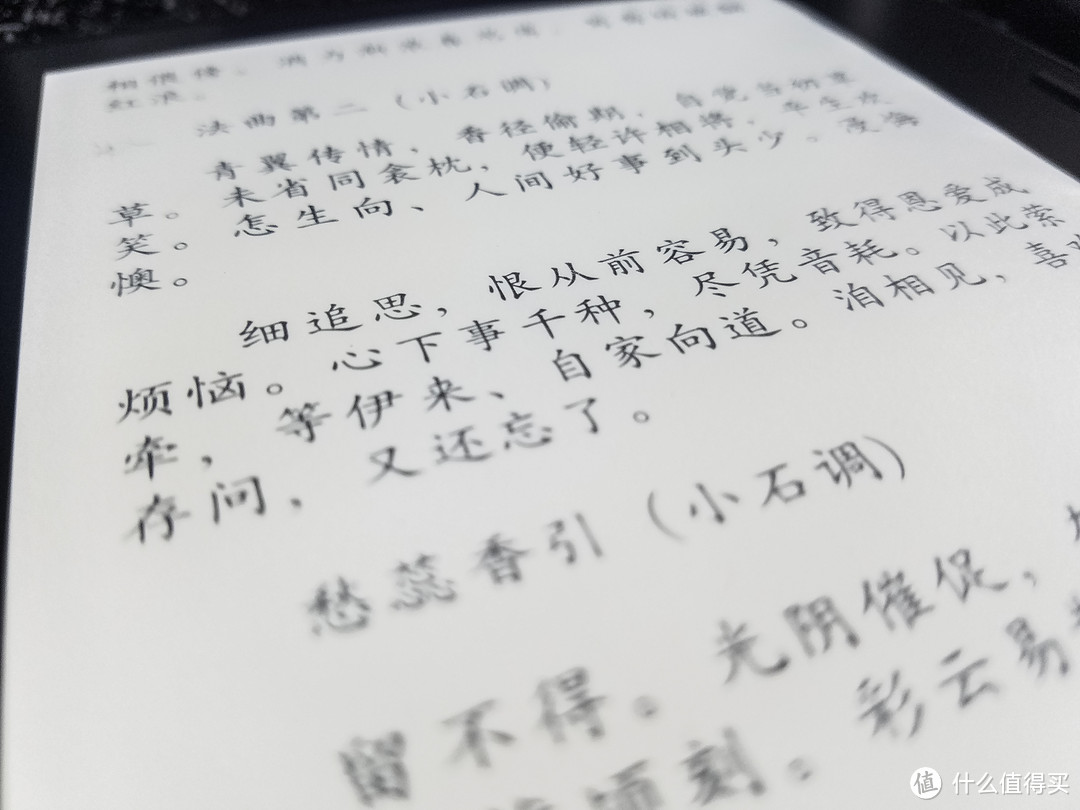 相偎倚。酒力渐浓春思荡。
红浪。
法曲第二（小石调）
青翼传情，香径偷期，自觉当初草
草。未省同衾枕，便轻许相将，平生欢
笑。怎生向、人间好事到头少。漫悔
懊。
细追思，恨从前容易，致得恩爱成
烦恼。心下事千种，尽凭音耗。以此萦
牵，等伊来、自家向道。洎相见，喜欢
存问、又还忘了。
愁蕊香引（小石调）
留不得。光阴催促，
顷刻。彩云易
值 什么值得买